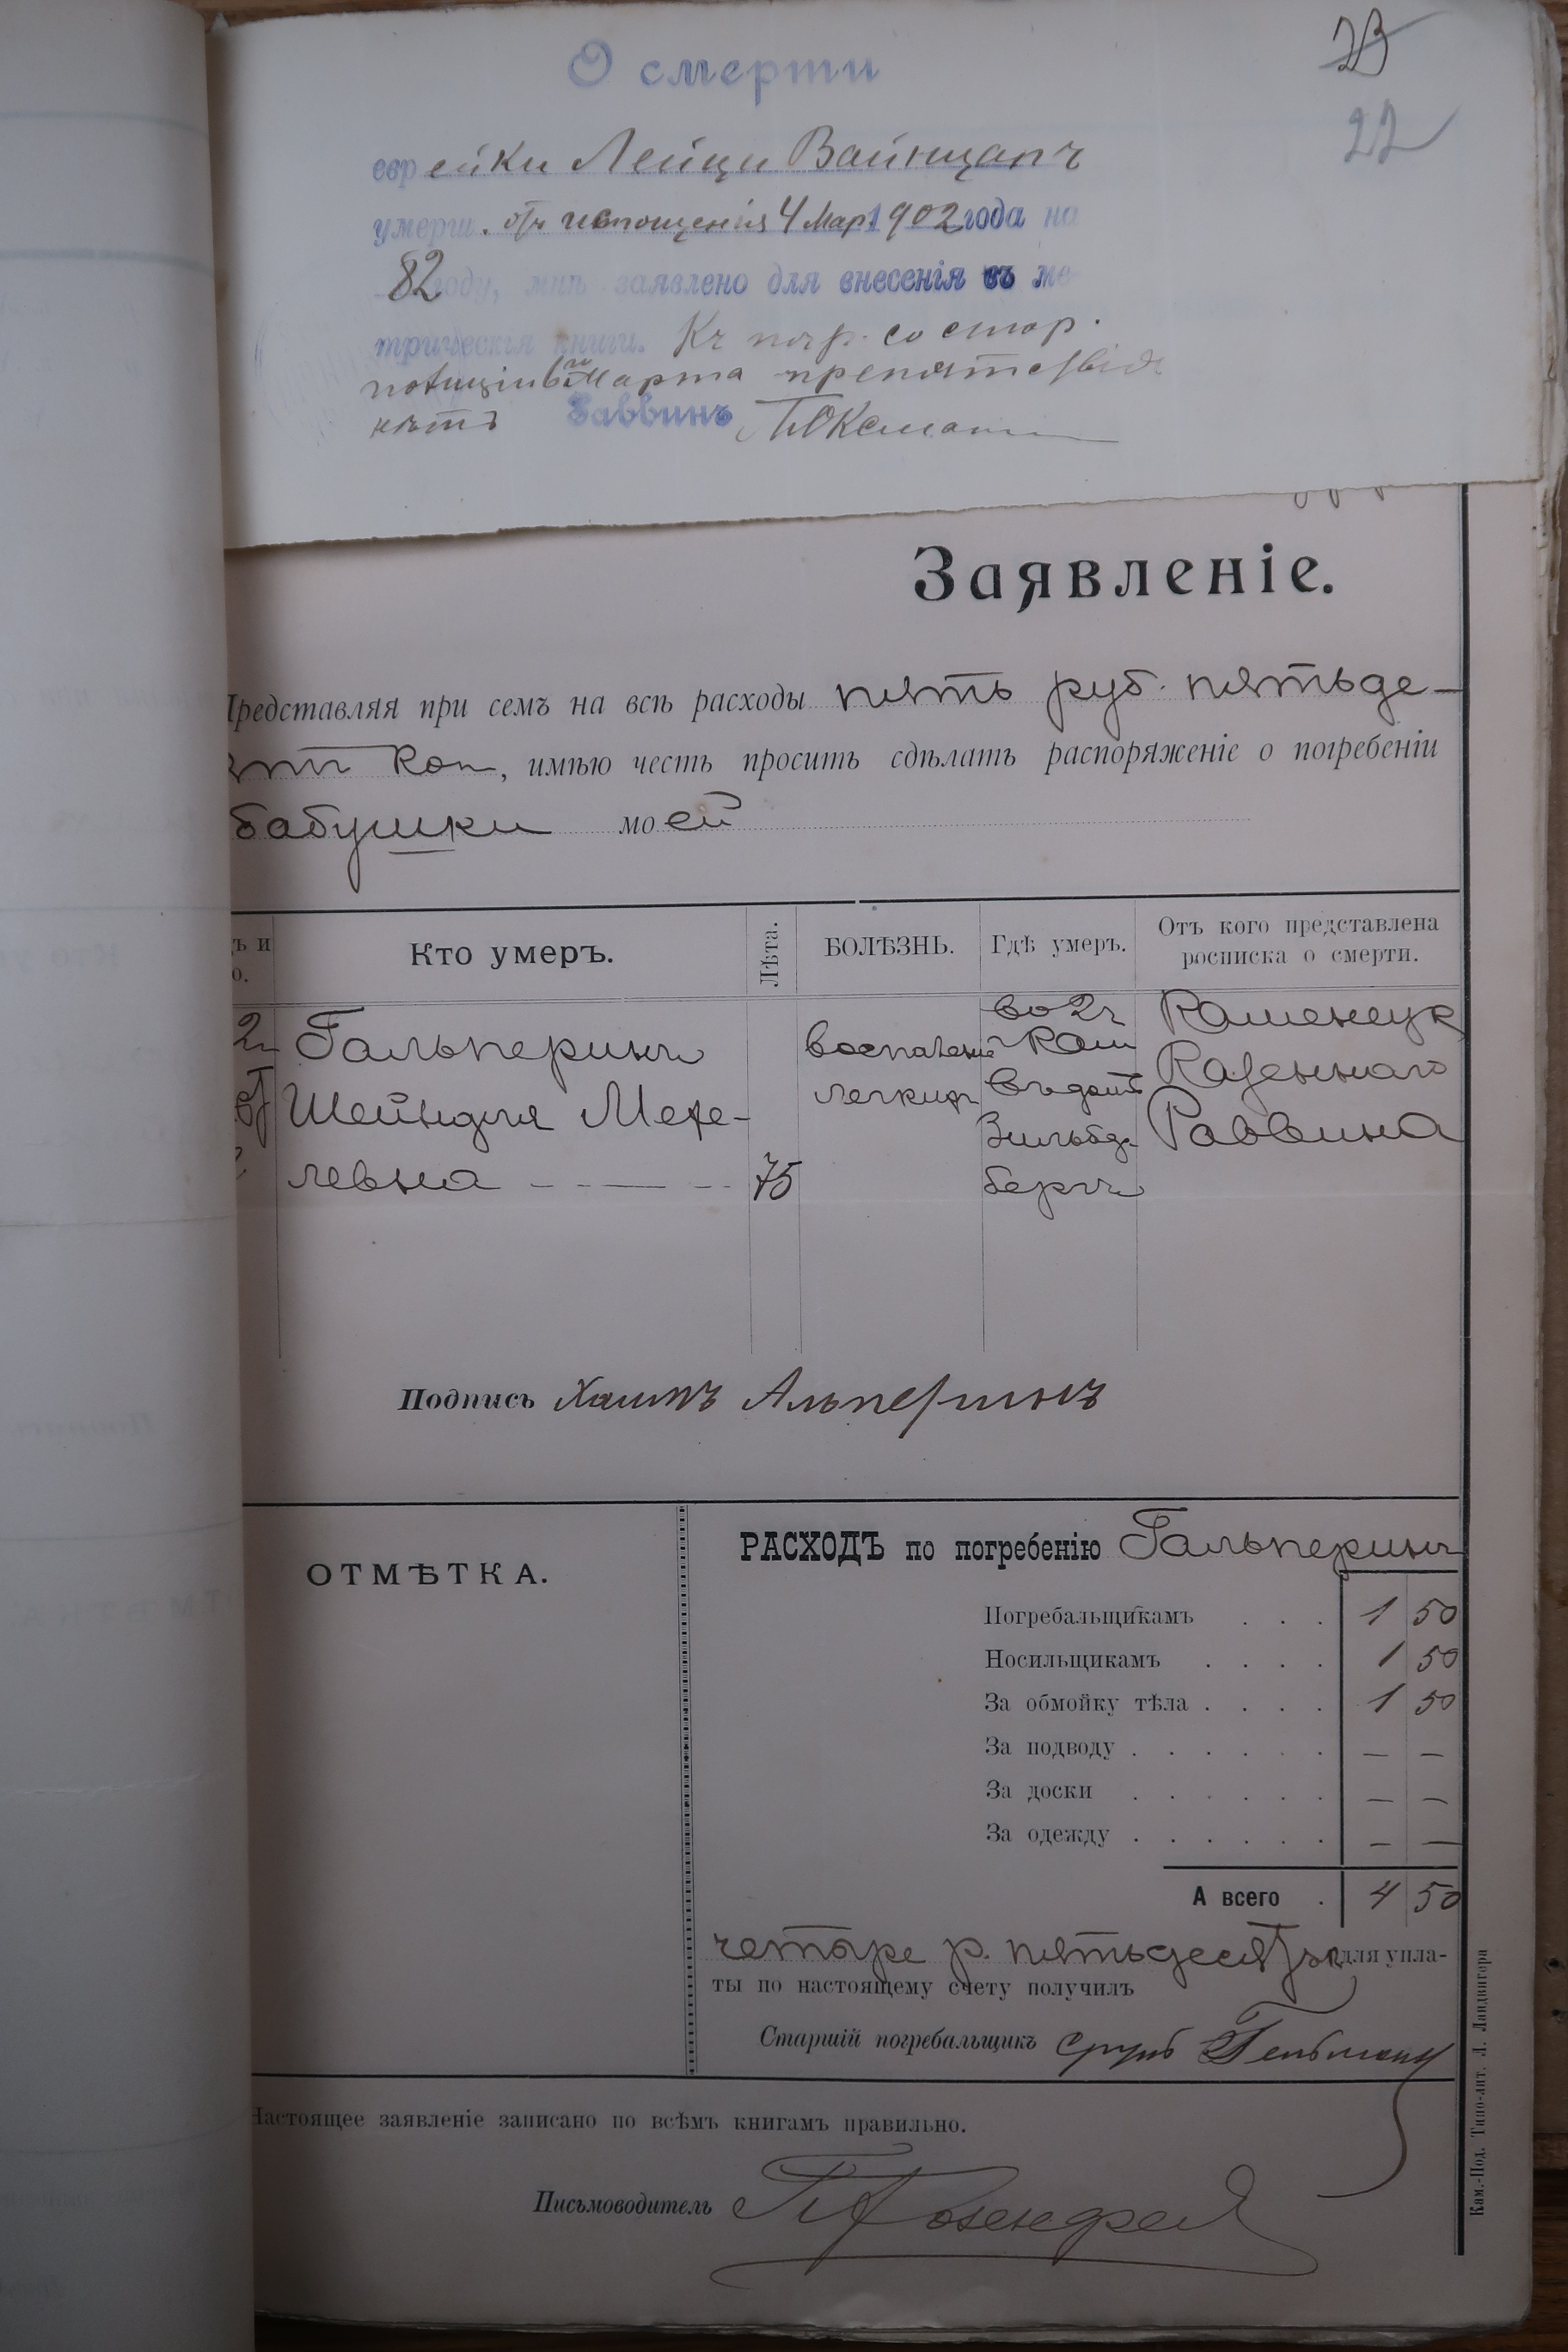 23
22
О смерти
еврейки Лейци Вайнцапъ
умерш. отъ истощенія 4 Мар 1902 года на
82 году, мнѣ заявлено для внесенія въ ме
трическія книги. Къ погр. со стор.
полиціи 6го Марта препятствія
нѣтъ Раввинъ
Заявленіе.
Представляя при семъ на всѣ расходы пять руб. пятьде-
ятъ коп, имѣю честь просить сдѣлать распоряженіе о погребеніи
бабушки моей
ъ и
о.
Кто умеръ.
Лѣта.
БОЛѢЗНЬ.
Гдѣ умеръ.
Отъ кого представлена
росписка о смерти.
Гальперинъ
Шейндля Мехе-
левна
75
воспаленіе
легкихъ
во 2ч
Кам
въ домѣ
Зильбер
бергъ
Каменецк
Казеннаго
Раввина
Подпись Хаимъ Альперинъ
ОТМѢТКА.
РАСХОДЪ по погребенію Гальперинъ
Погребальщикамъ . . . 1 50
Носильщикамъ . . . . 1 50
За обмойку тѣла . . . . 1 50
За подводу . . . . . . — —
За доски . . . . . . — —
За одежду . . . . . . — —
А всего . 4 50
четыре р. пятьдесятъ к для упла-
ты по настоящему счету получилъ
Старшій погребальщикъ
Настоящее заявленіе записано по всѣмъ книгамъ правильно.
Письмоводитель
Кам.-Под. Типо-лит. Л. Ландвигера